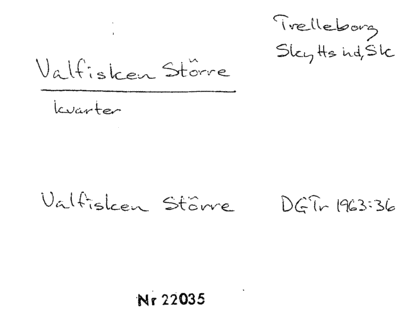 Trelleborg
Skytts hd, Sk
Valfisken Större
kvarter
Valfisken Större DGTr 1963:36
Nr 22035